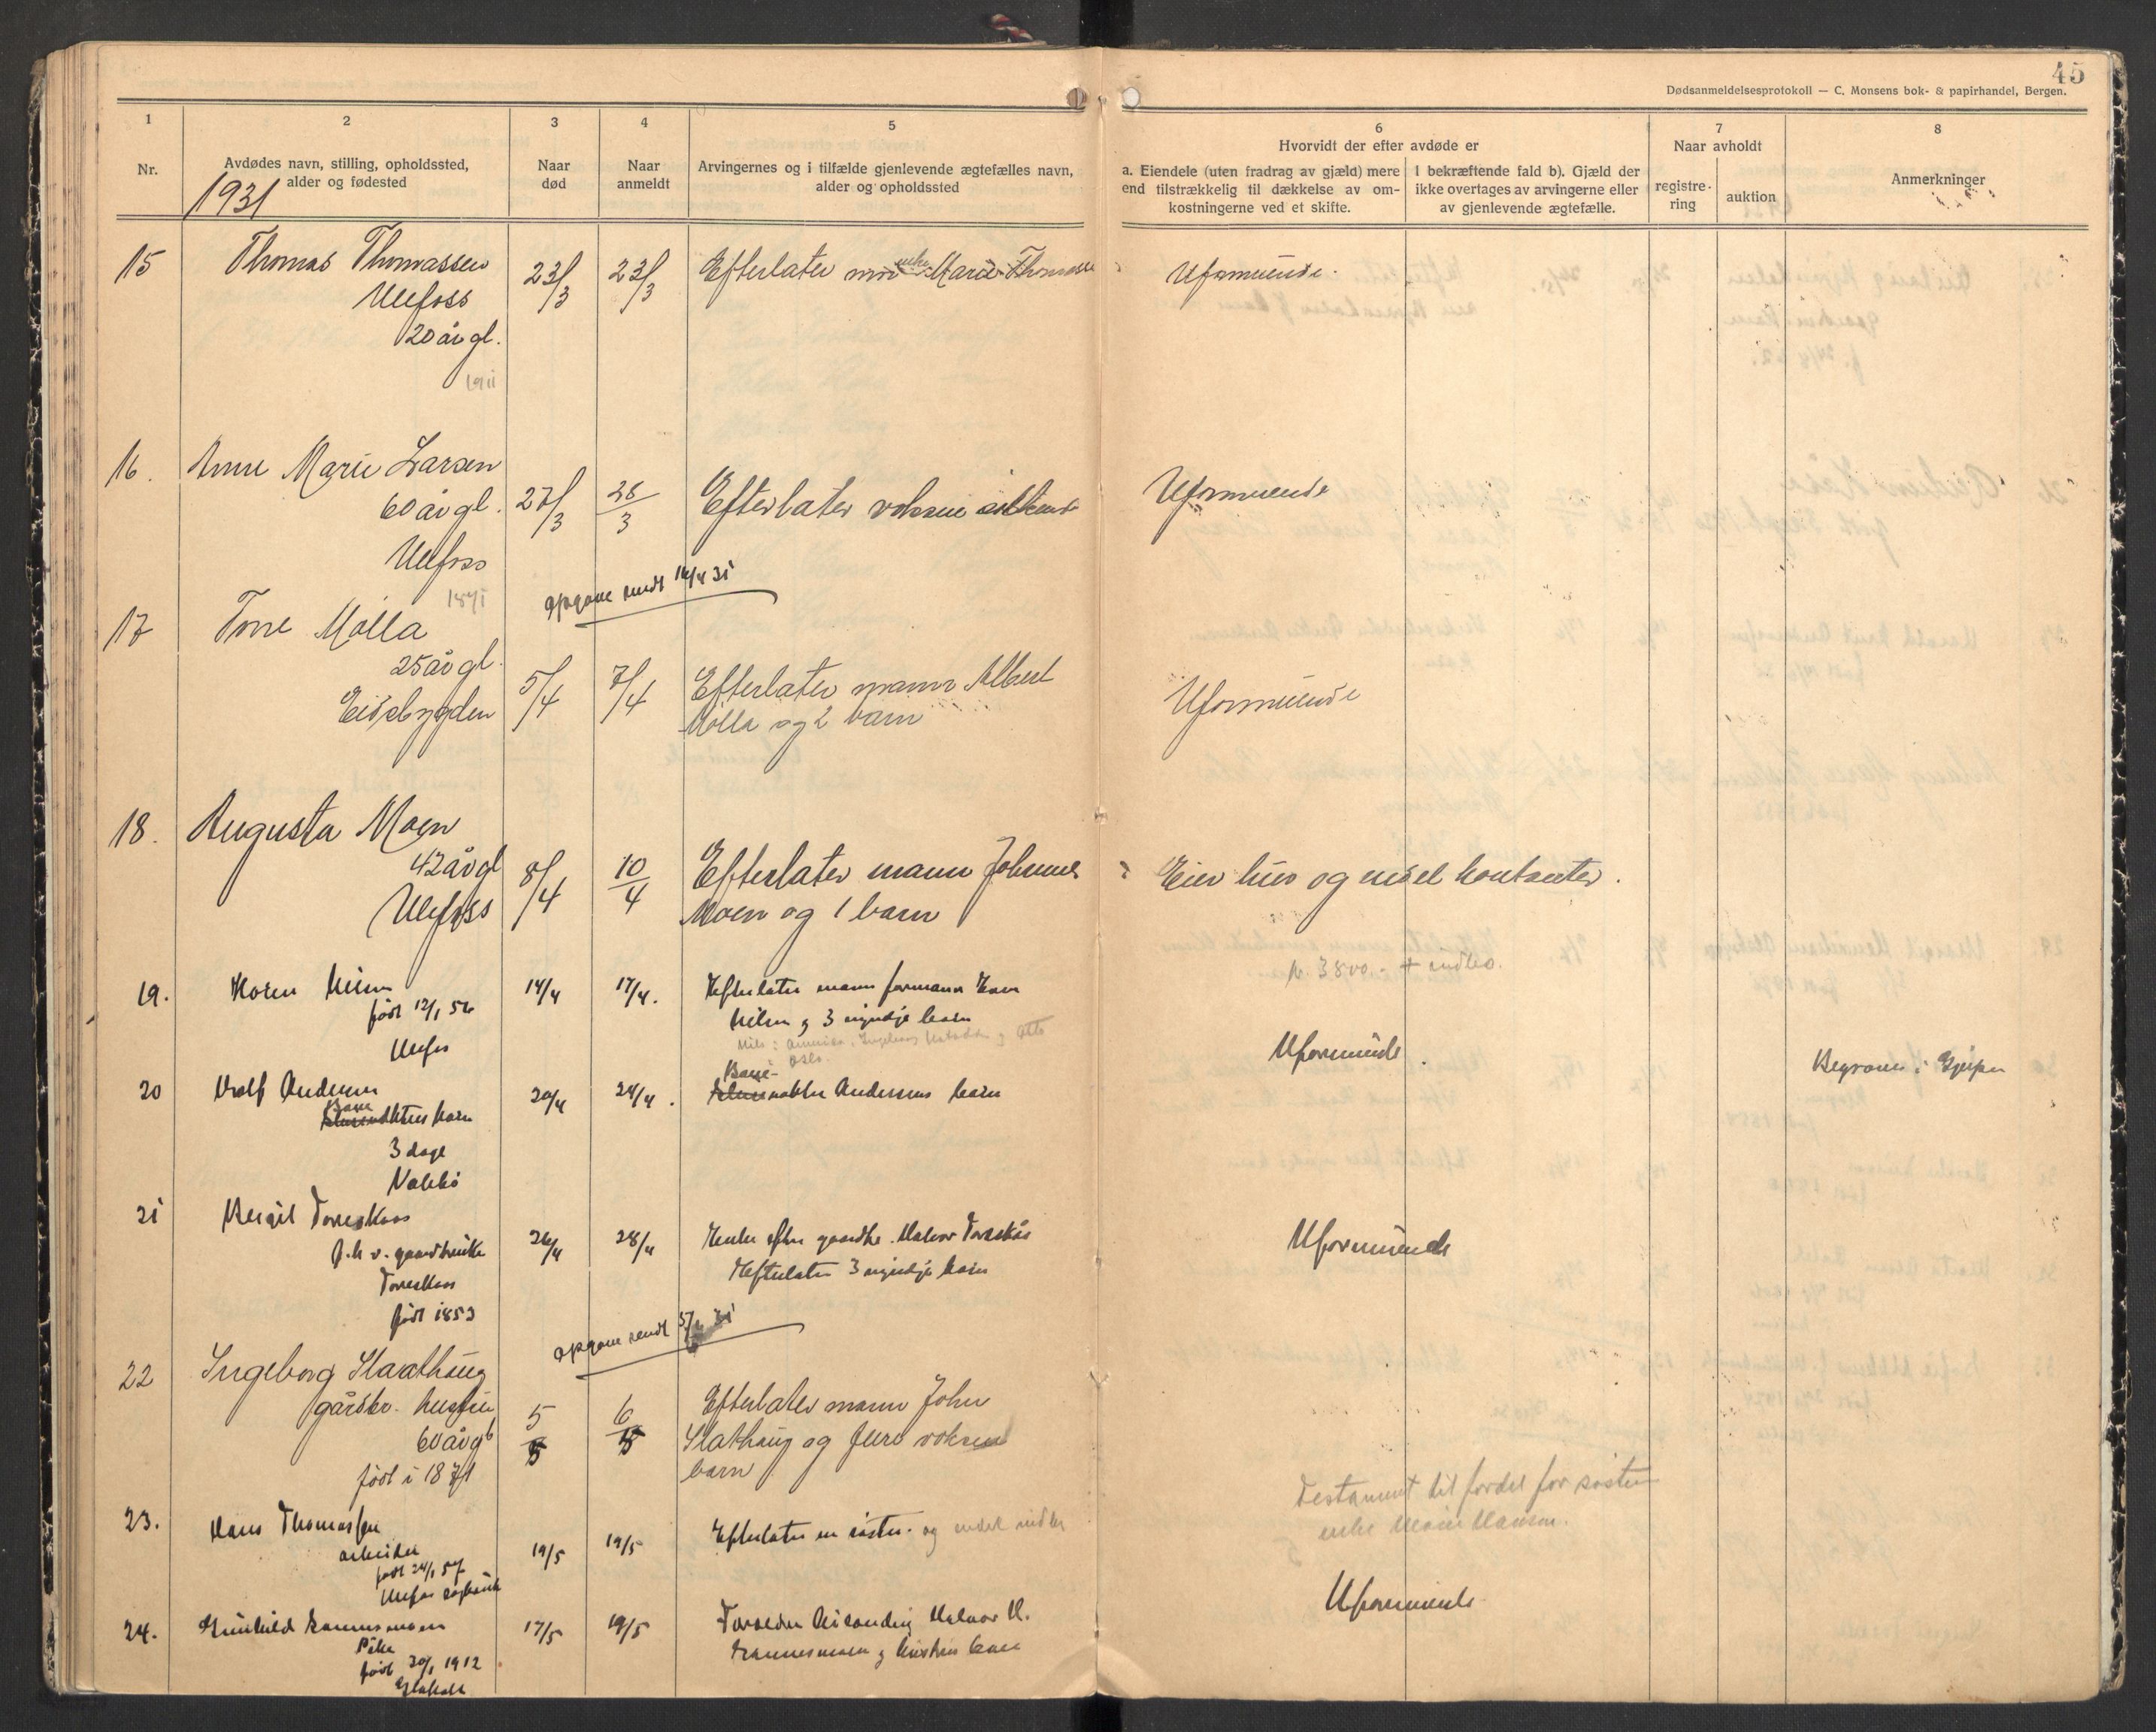 45
Dødsanmeldelsesprotokoll — C. Monsens bok- & papirhandel, Bergen.
1
Nr.
2
Avdødes navn, stilling, opholdssted,
alder og fødested
3
Naar
død
4
Naar
anmeldt
5
Arvingernes og i tilfælde gjenlevende ægtefælles navn,
alder og opholdssted
6
Hvorvidt der efter avdøde er
a. Eiendele (uten fradrag av gjæld) mere
end tilstrækkelig til dækkelse av om-
kostningerne ved et skifte.
I bekræftende fald b). Gjæld der
ikke overtages av arvingerne eller
av gjenlevende ægtefælle.
7
Naar avholdt
registre-
ring
auktion
8
Anmerkninger
1931
15 Thomas Thomassen 23/3 23/3 Efterlater mor enke Marie Thomassen Uformuende.
Ulefoss
20 år gl.
1911
16. Anne Marie Larsen
60 år gl. 27/3 28/3 Efterlater voksne Uformuende
Ulefoss
1871
opgave sendt 14/4 31
17 Tone Molla
25 år gl.
Eidsbygden 5/4 7/4 Efterlater mann Albert Uformuende
Molla og 2 barn
18. Augusta Moen
42 år gl 8/4 10/4 Efterlater mann Johannes Eier hus og endel kontanter.
Ulefoss Moen og 1 barn
kr. 3800.- + indbo.
19. Karen Nilsen 14/4 17/4. Efterlater mann formann
født 12/1 56 Nilsen og 3 myndje barn
Ulefos Uformuende.
Oslo.
20 Rolf Andersen 20/4 24/4. Andersens barn Begraven i Gjerpen
barn
3 dage
21 Bergit Toreskaas 26/4 28/4 Enke efter gaardbr. Halvor Toreskås Uformuende
g.k. v. gaardbruker Efterlater 3 myndje barn
Toreskaas
født 1853
opgave sendt 5/5 31
22 Ingeborg Slaathaug
gårdbr. hustru 5/5 6/5 Efterlater mann John
60 år gl Slathaug og flere voksne
født i 1871 barn
Testament til fordel for søster
enke Hansen.
23. Hans Thomassen 19/5 19/5 Efterlater en søster. og endel indbo
arbeider
født 24/1 57
Ulefos
24. Gunhild Kannesmoen 17/5 19/5 Forældre Halvor H. Uformuende
Pike Kannesmoen og
født 20/1 1912